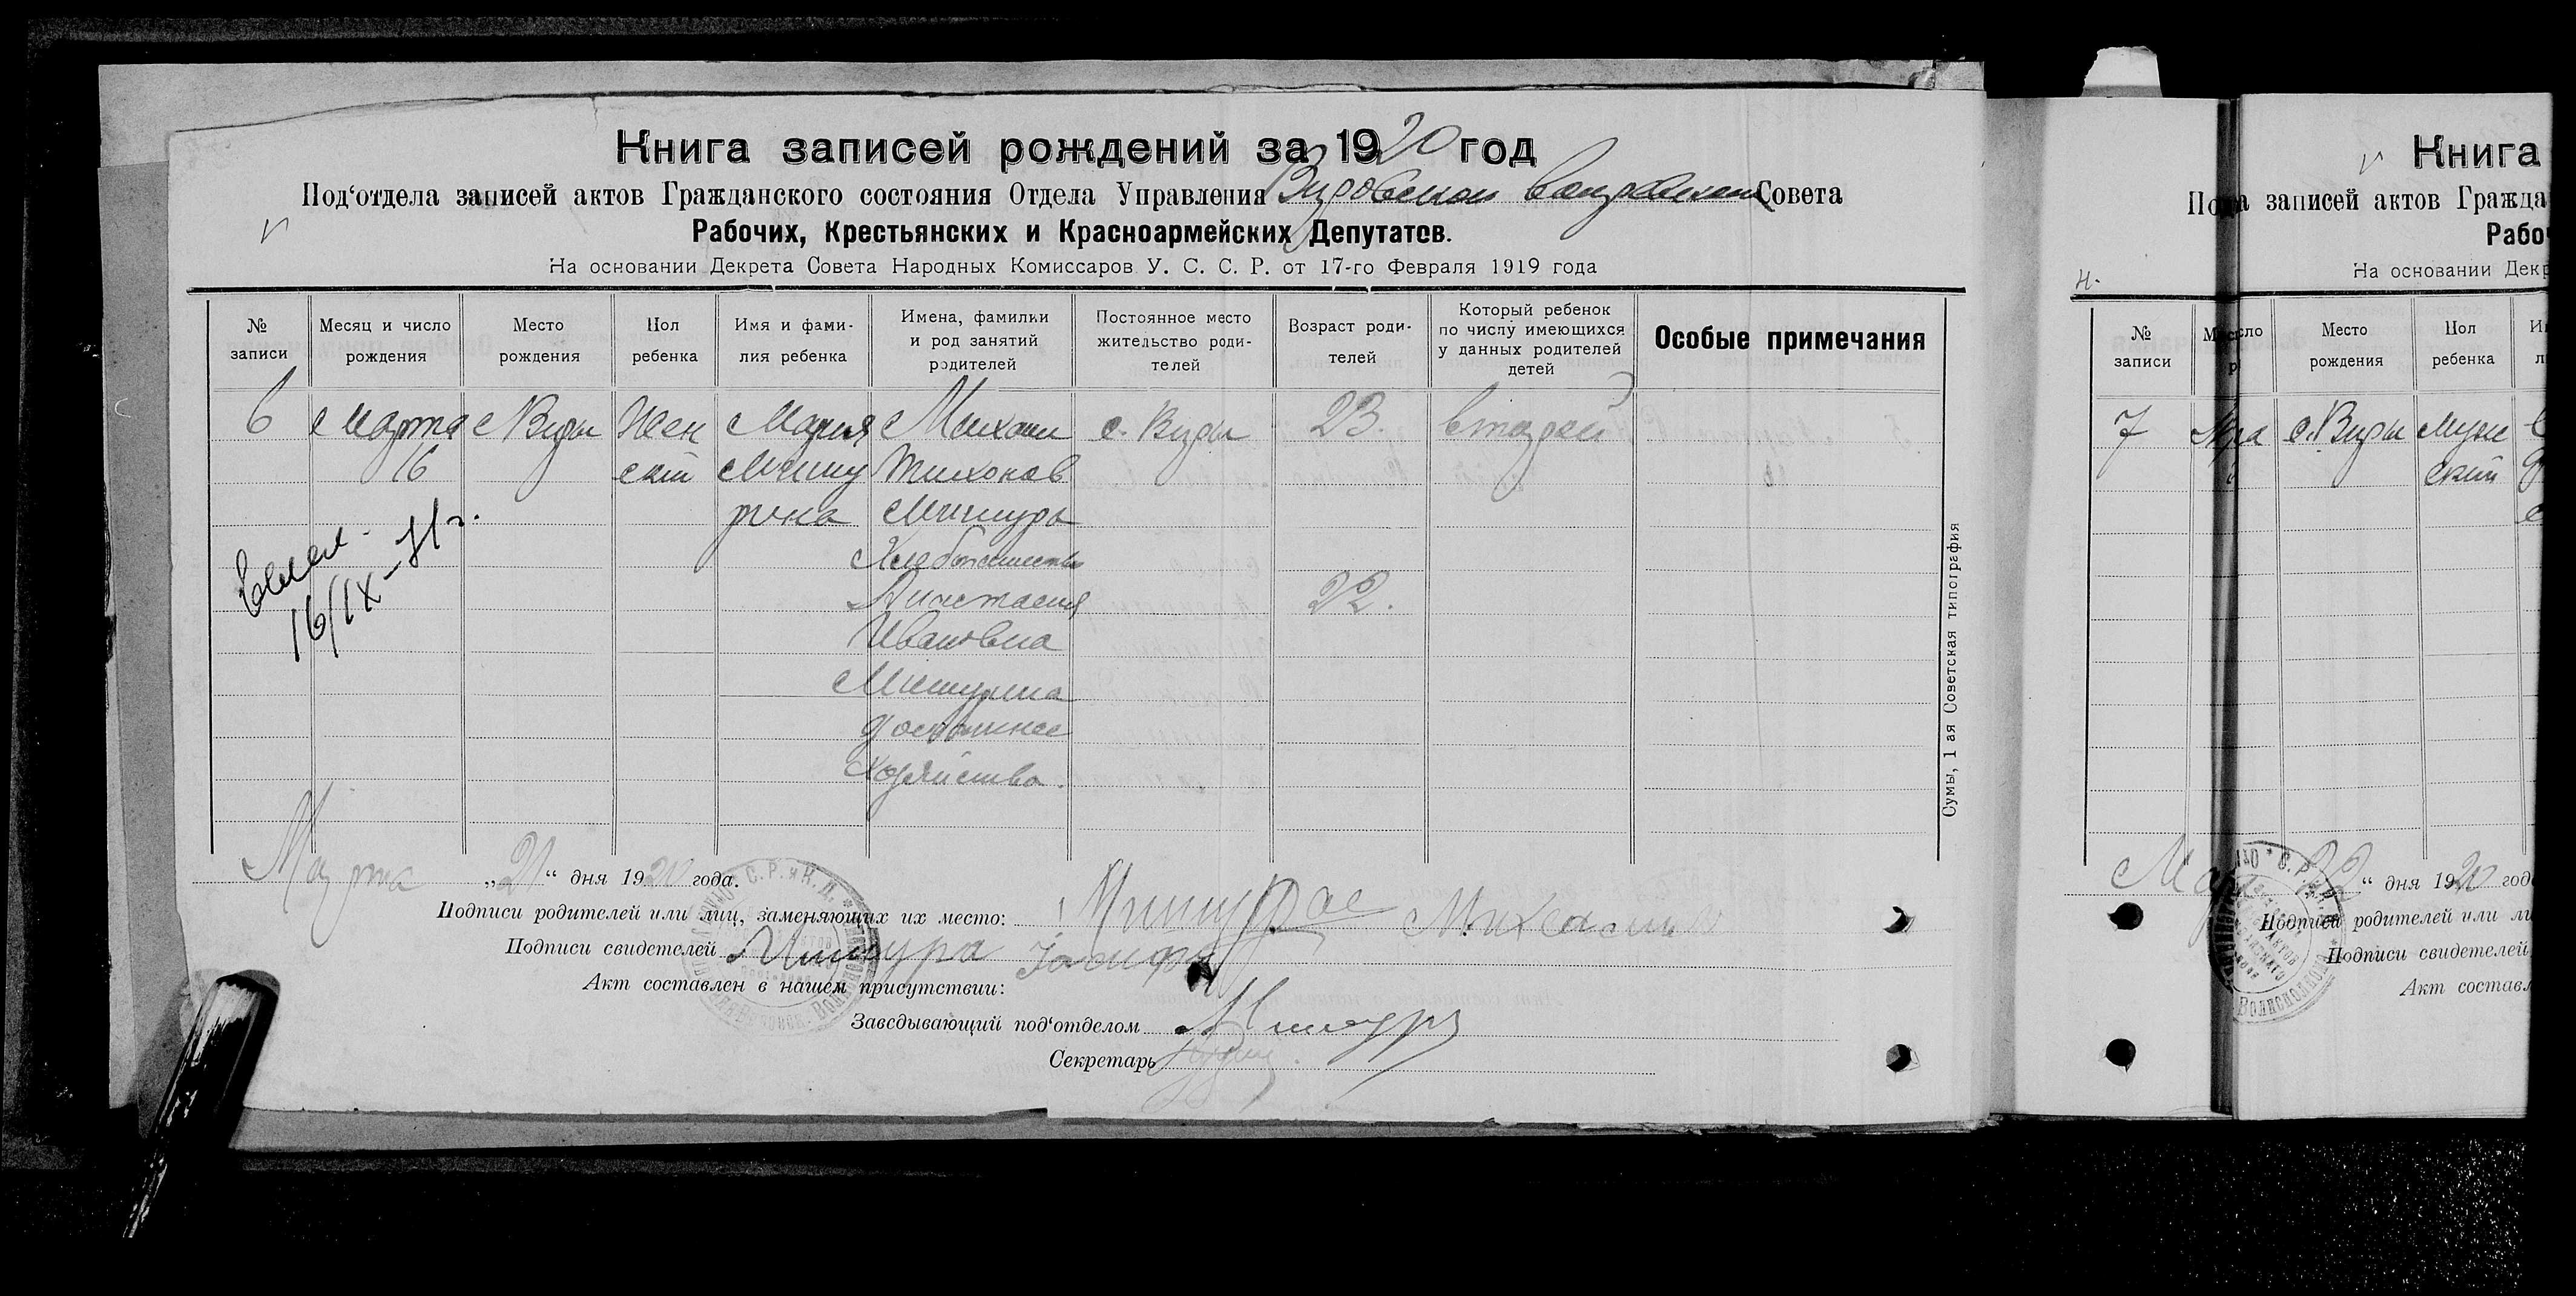 Книга записей рождений за 1920 год
Под'отдела записей актов Гражданского состояния Отдела Управления Вировской Совета
Рабочих, Крестьянских и Красноармейских Депутатов.
На основании Декрета Совета Народных Комиссаров У. С. С. Р. от 17-го Февраля 1919 года
№ записи
Месяц и число рождения
Место рождения
Пол ребенка
Имя и фами-
лия ребенка
Имена, фамилии
и род занятий
родителей
Постоянное место
жительство роди-
телей
Возраст роди-
телей
Который ребенок
по числу имеющихся
у данных родителей
детей
Особые примечания
6 Марта с Виры Жен Мария Михаил с. Виры 23. второй
16 ский Мишу Тихонов
рина Мишура
Хлебопашество
Анастасия 22.
Ивановна
Мишурина
домашнее
Хозяйство.
16/IX-71г.
Марта „21“ дня 1920 года.
Подписи родителей или лиц, заменяющих их место: Михаил
Подписи свидетелей Мишура
Акт составлен в нашем присутствии:
Заведывающий под'отделом Мишура
Секретарь
Сумы, 1 ая Советская типография
Книга
записей актов Гражда
Рабо
На основании Дек
№ записи
Место рождения
Пол ребенка
7 с. Виры Муж
ский
22“ дня 1920 год
Подписи родителей или ли
Подписи свидетелей
Акт состав